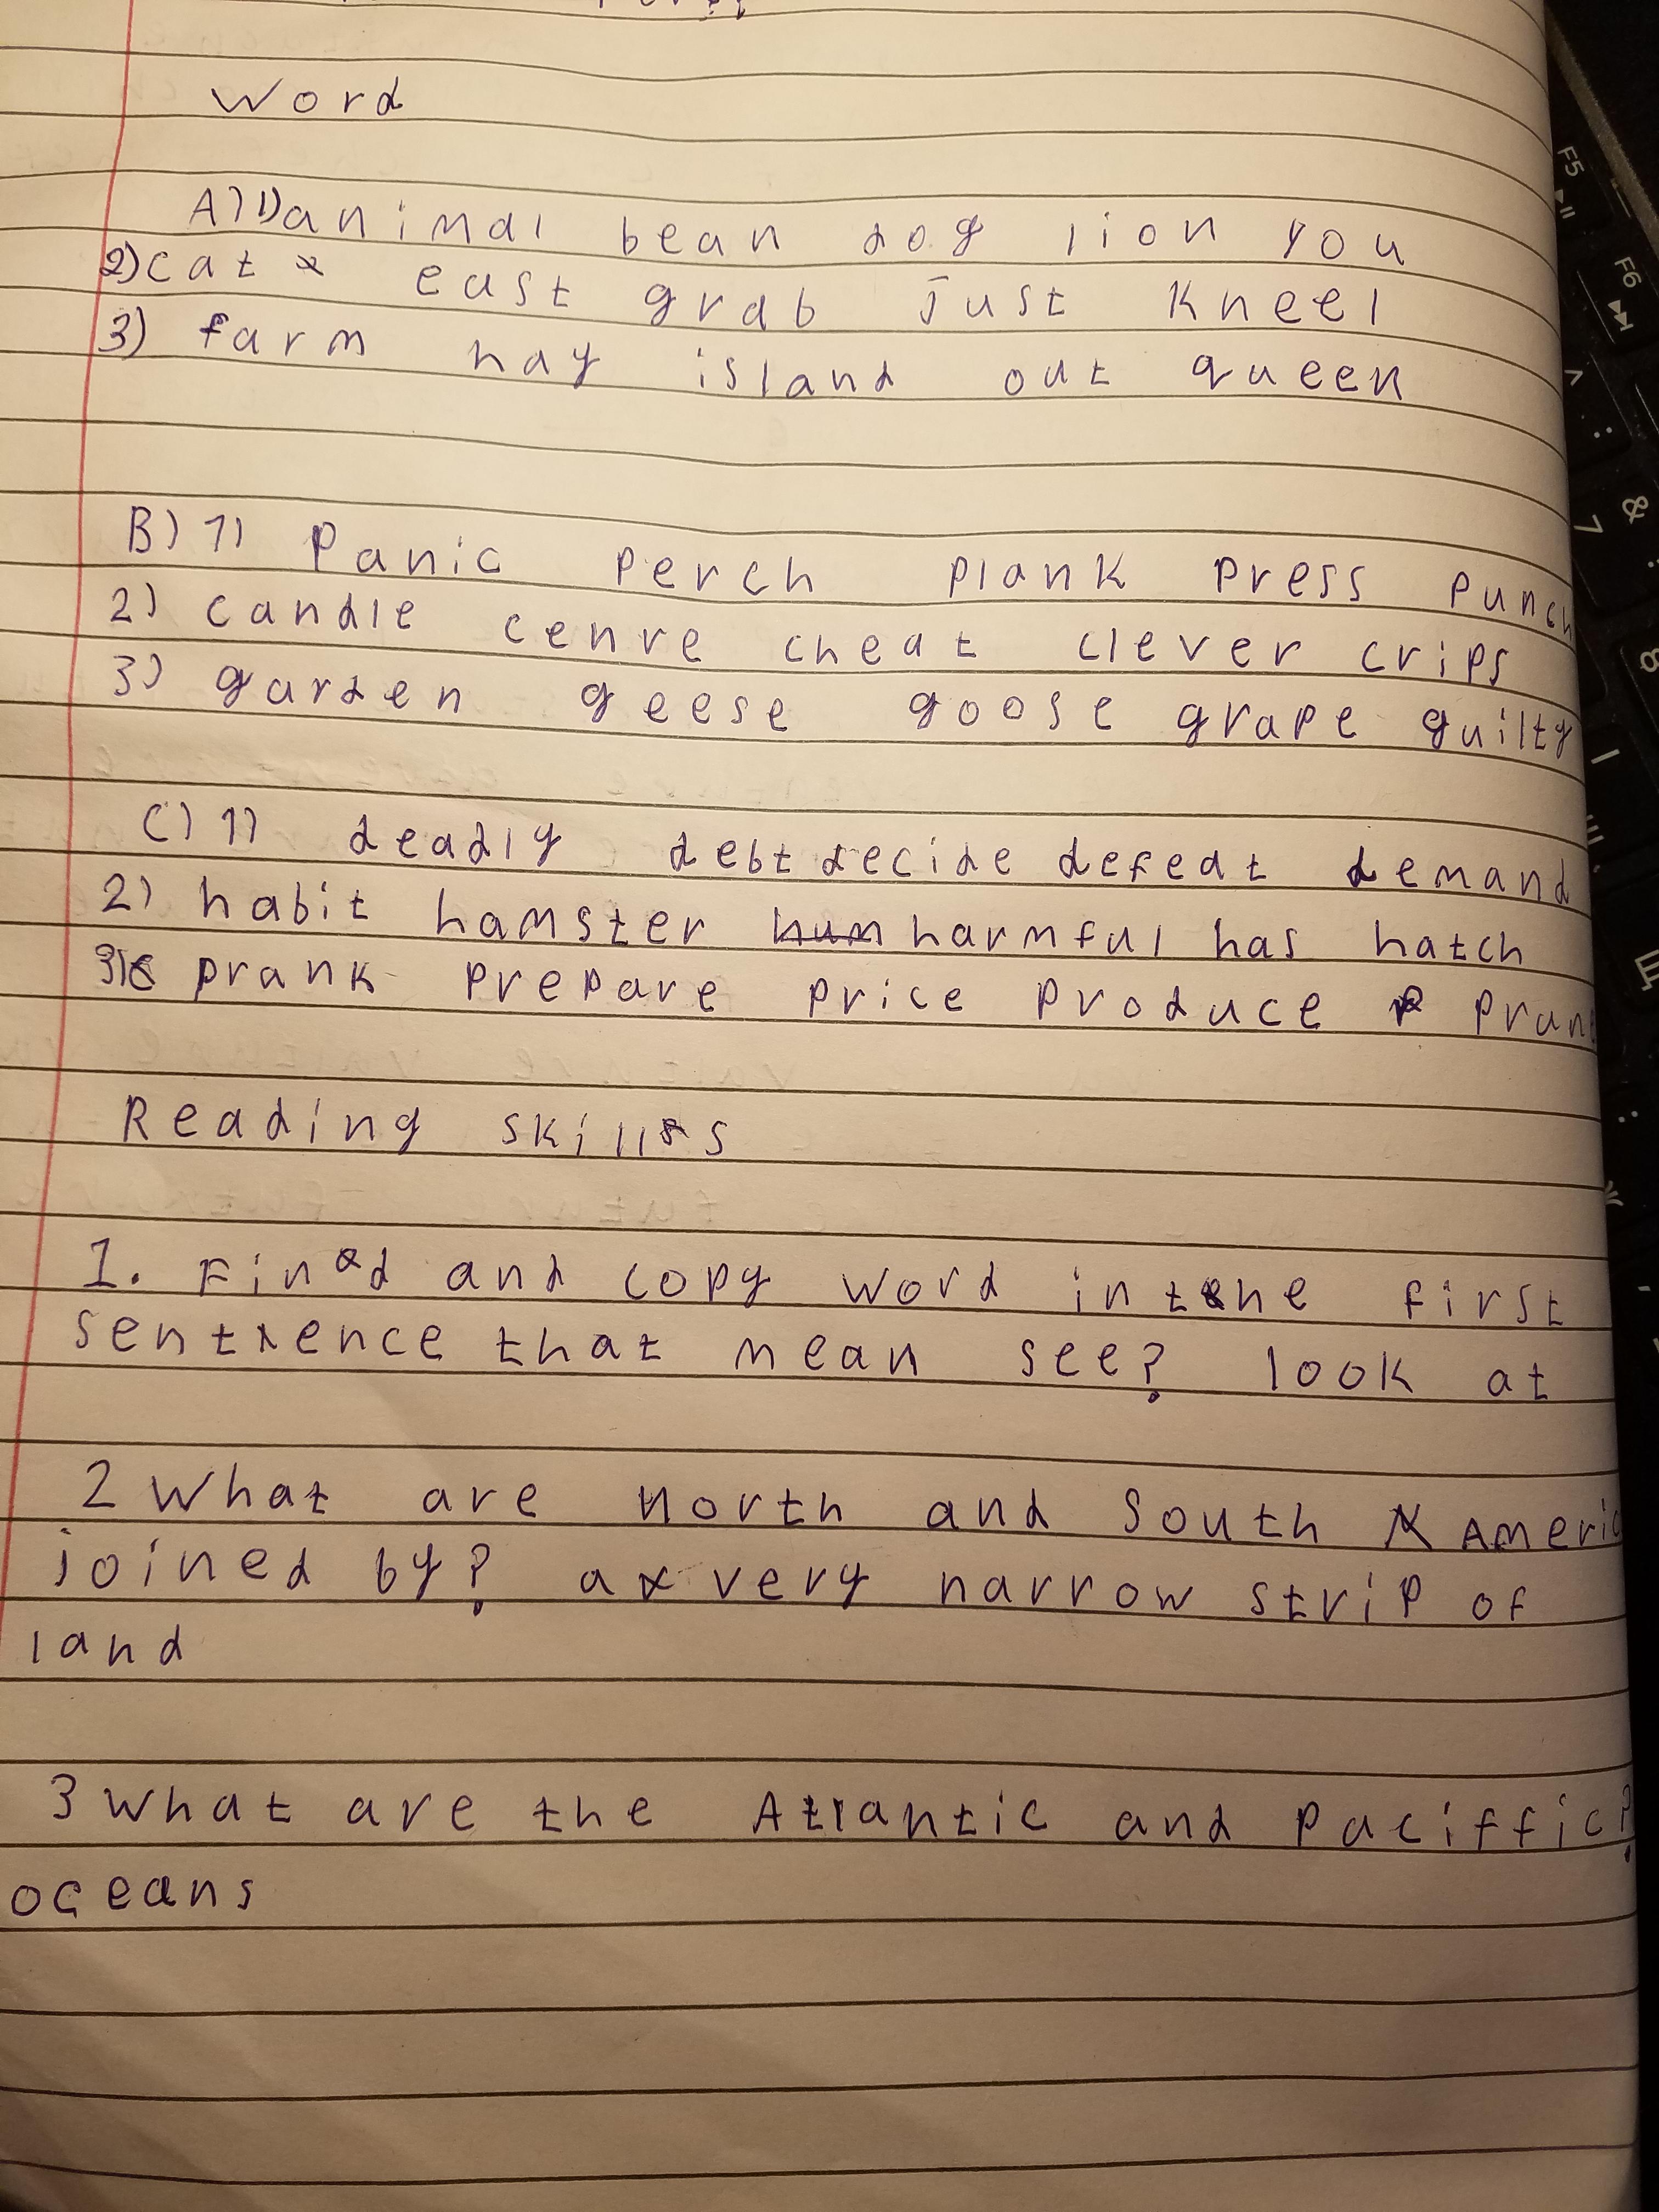 Word
A) 1) animal bean dog lion you
2) cat east grab just kneel
3) farm hay island out queen
B) 1) Panic perch plank press punch
2) candle cenre cheat clever crips
3) garden geese goose grape guilty
C) 1) deadly debt decide defeat demand
2) habit hamster hum harmful has hatch
3) prank prepare price produce prune
Reading skills
1. Find and copy word in the first
sentence that mean see? look at
2 What are North and South Americ
joined by? a very narrow strip of
land
3 What are the Atlantic and Paciffic?
oceans
F5
F6
7
&
8